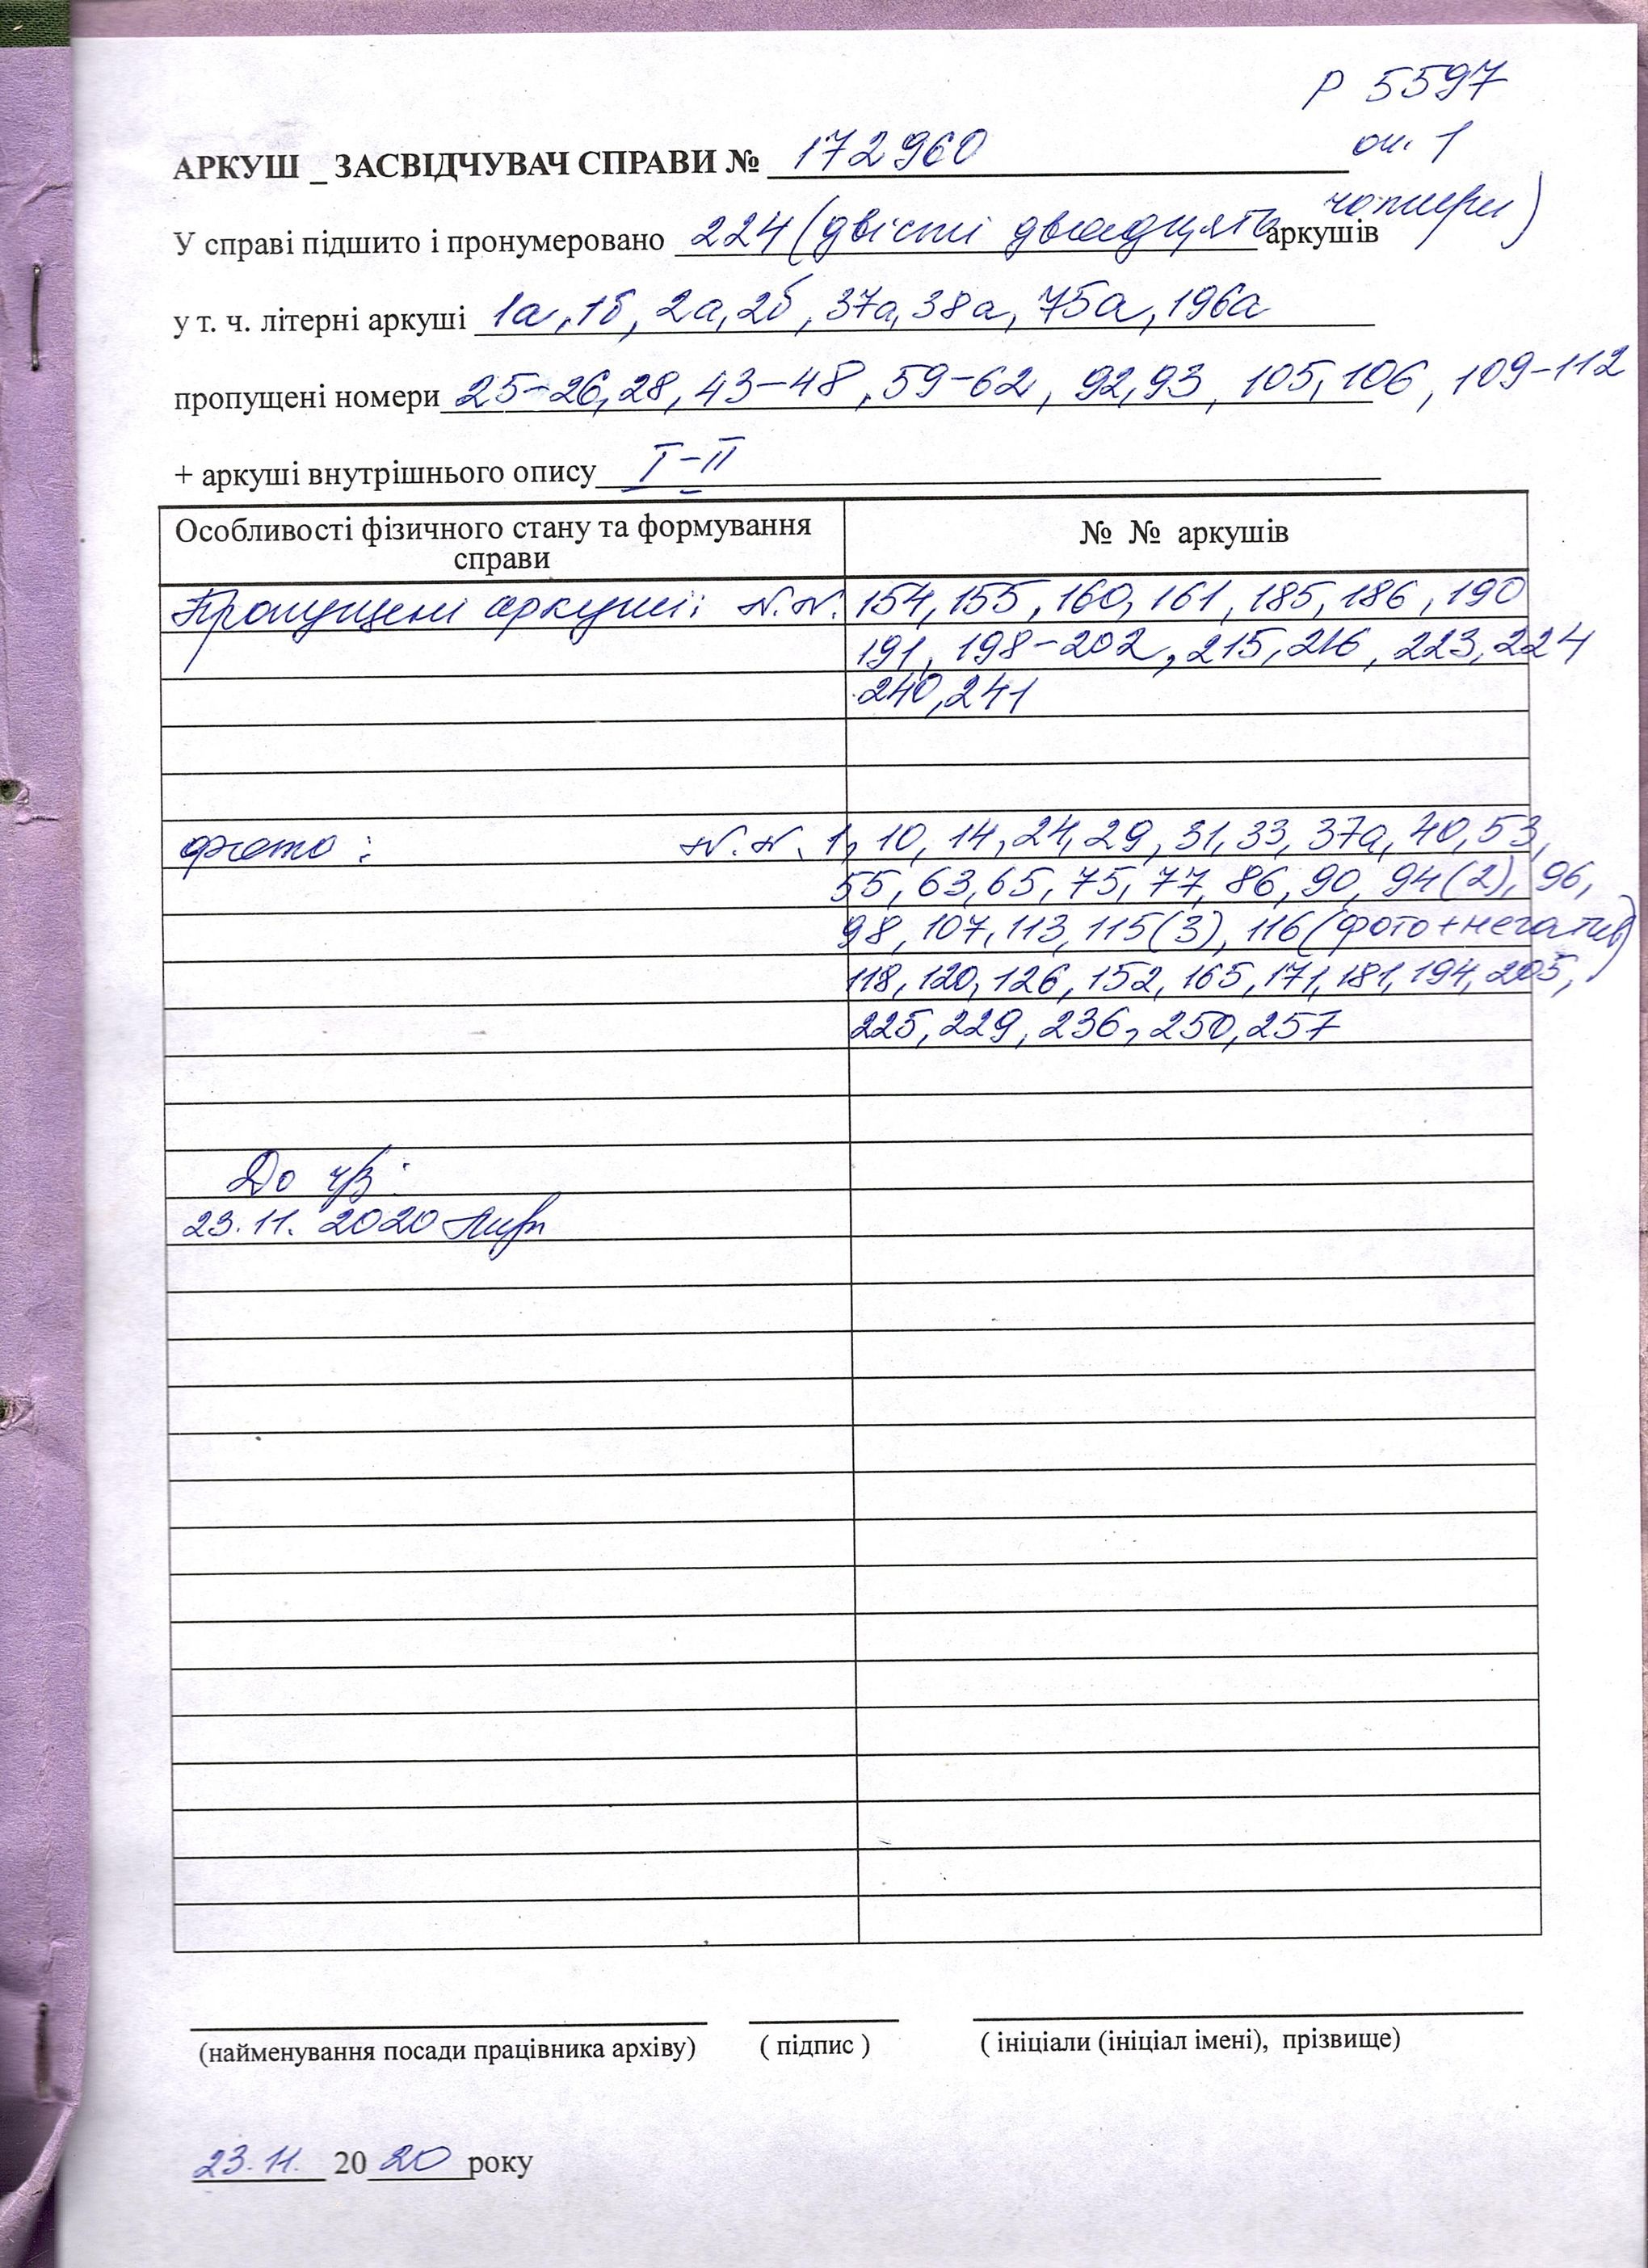 Р 5597
оп. 1
АРКУШ _ ЗАСВІДЧУВАЧ СПРАВИ № 172960
У справі підшито і пронумеровано 224 (двісті двадцять чотири) аркушів
у т. ч. літерні аркуші 1а, 1б, 2а, 2б, 37а, 38а, 75а, 196а
пропущені номери 25-26, 28, 43-48, 59-62, 92, 93, 105, 106, 109-112
+ аркуші внутрішнього опису I-II
Особливості фізичного стану та формування справи
№ № аркушів
Пропущені аркуші: N.N. 154, 155, 160, 161, 185, 186, 190
191, 198-202, 215, 216, 223, 224
240, 241
фото: N.N. 1, 10, 14, 24, 29, 31, 33, 37а, 40, 53,
55, 63, 65, 75, 77, 86, 90, 94(2), 96,
98, 107, 113, 115(3), 116 (фото+негатив)
118, 120, 126, 152, 165, 171, 181, 194, 205,
225, 229, 236, 250, 257
До ч/з:
23.11. 2020
(найменування посади працівника архіву) ( підпис ) ( ініціали (ініціал імені), прізвище)
23.11. 2020 року